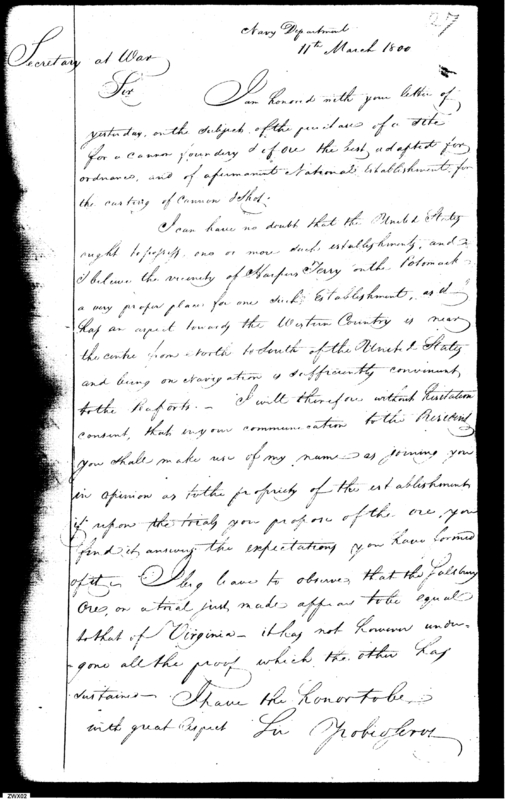 27
Navy Department
11th March 1800
Secretary at War
Sir
I am honored with your letter of
yesterday, on the subject of the purchase of a site
for a cannon foundery & of ore the best adapted for
ordnance, and of a permanent National Establishment for
the casting of cannon & Shot.
I can have no doubt that the United States
ought to possess one or more such establishments, and
I believe the vicinity of Harpers Ferry on the Potomack
a very proper place for one such Establishment, as it
has an aspect towards the Western Country is near
the centre from North to South of the United States
and being on Navigation is sufficiently convenient
to the Seaports. — I will therefore without hesitation
consent, that in your communication to the President
you shall make use of my name as joining you
in opinion as to the propriety of the establishment
if upon the trials you propose of the ore, you
find it answers the expectations you have formed
of it. I beg leave to observe that the Salsbury
Ore, on a trial just made appears to be equal
to that of Virginia — it has not however under-
gone all the proof which the other has
sustained — I have the honor to be
with great respect Sir Yr obed Servt
ZWX02